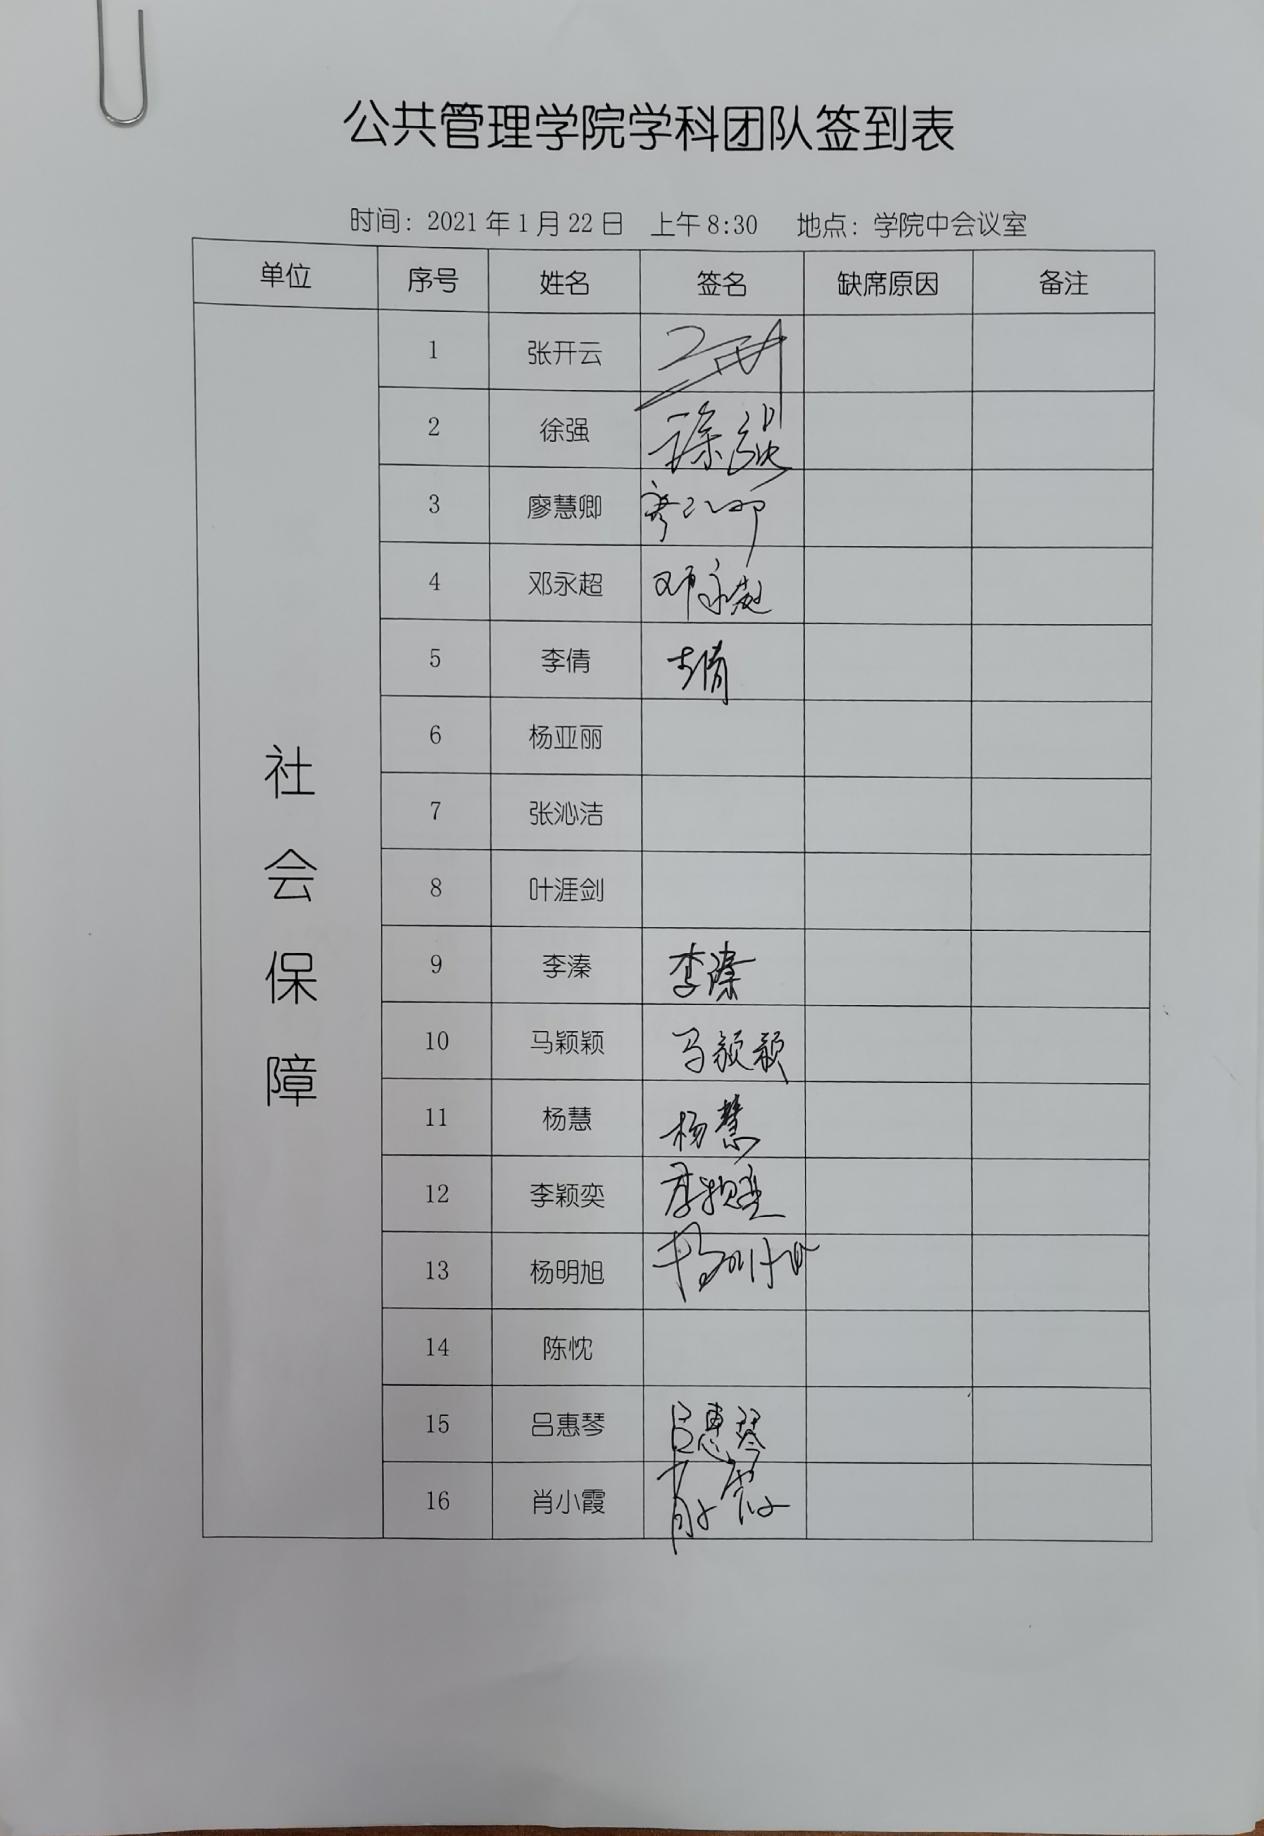 公共管理学院学科团队签到表
时间：2021年1月22日 上午8:30 地点：学院中会议室
单位 序号 姓名 签名 缺席原因 备注
社会保障
1 张开云
2 徐强 徐强
3 廖慧卿
4 邓永超 邓永超
5 李倩 李倩
6 杨亚丽
7 张沁洁
8 叶涯剑
9 李溱 李溱
10 马颖颖 马颖颖
11 杨慧 杨慧
12 李颖奕 李颖奕
13 杨明旭
14 陈忱
15 吕惠琴 吕惠琴
16 肖小霞